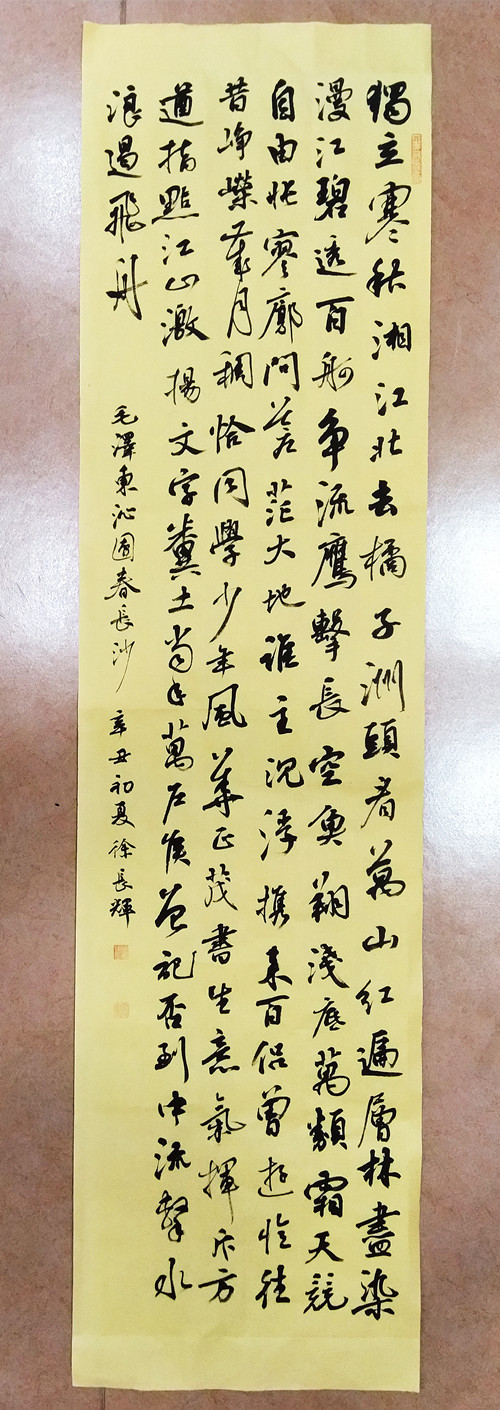 獨立寒秋湘江北去橘子洲頭看萬山紅遍層林盡染
漫江碧透百舸争流鷹擊長空魚翔淺底萬類霜天競
自由悵寥廓問蒼茫大地誰主沉浮携來百侣曾遊憶往
昔崢嶸歲月稠恰同學少年風華正茂書生意氣揮斥方
遒指點江山激揚文字糞土當年萬戶侯曾記否到中流擊水
浪遏飛舟
毛澤東沁園春長沙 辛丑初夏徐長輝